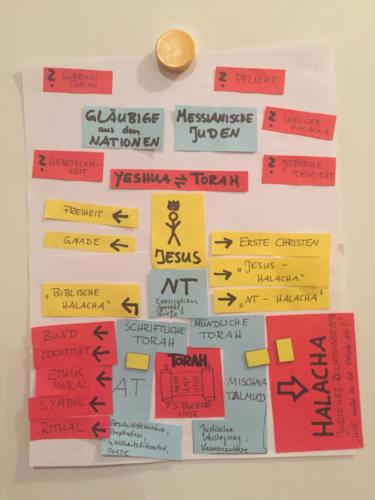 ? WARUM TORAH
? PFLICHT
GLÄUBIGE
aus den
NATIONEN
MESSIANISCHE
JUDEN
? WELCHE
HALACHA
? GESETZLICH-
KEIT
? JÜDISCHE
IDENTITÄT
YESHUA ⇌ TORAH
FREIHEIT ←
GNADE ←
JESUS
→ ERSTE CHRISTEN
→ „JESUS -
HALACHA"
→ „NT - HALACHA"
„BIBLISCHE
HALACHA"
NT
Evangelien
Briefe
BUND ←
IDENTITÄT ←
ETHIK
MORAL ←
SYMBOL ←
RITUAL ←
SCHRIFTLICHE
TORAH
MÜNDLICHE
TORAH
AT
TORAH
5 BÜCHER
MOSE
MISCHNA
TALMUD
Geschichtsbücher,
Propheten,
Weisheitsliteratur,
Poesie
Jüdische
Auslegung,
Kommentare
HALACHA
JÜDISCHES